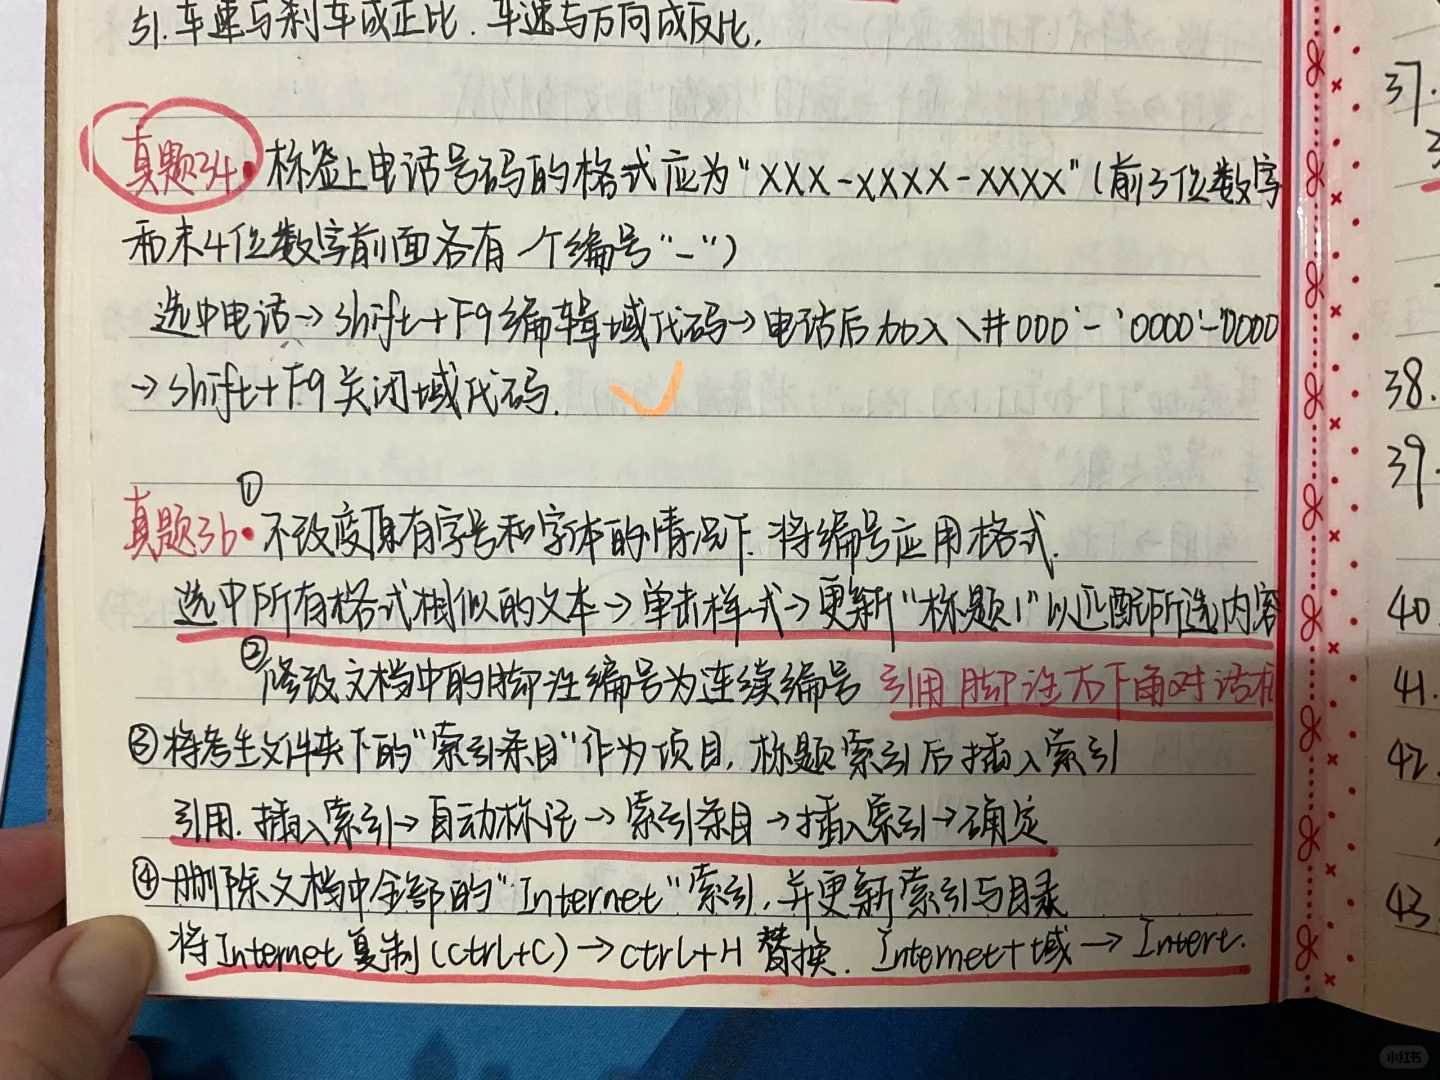 51.车速与刹车成正比.车速与方向成反比.
真题34.标签上电话号码的格式应为“XXX-XXXX-XXXX”(前3位数字
和末4位数字前面各有一个编号“-”)
选中电话→shift+F9编辑域代码→电话后加入\#000'-'0000'-'0000
→shift+F9关闭域代码.
真题36.①不改变原有字号和字体的情况下.将编号应用格式.
选中所有格式相似的文本→单击样式→更新“标题1”以匹配所选内容
②修改文档中的脚注编号为连续编号 引用脚注右下角对话框
③将考生文件夹下的“索引条目”作为项目,标题索引后插入索引
引用.插入索引→自动标记→索引条目→插入索引→确定
④删除文档中全部的“Internet”索引,并更新索引与目录
将Internet复制(ctrl+C)→ctrl+H替换.Internet+域→Intert.
37.
38.
39.
40.
41.
42.
43.
小红书